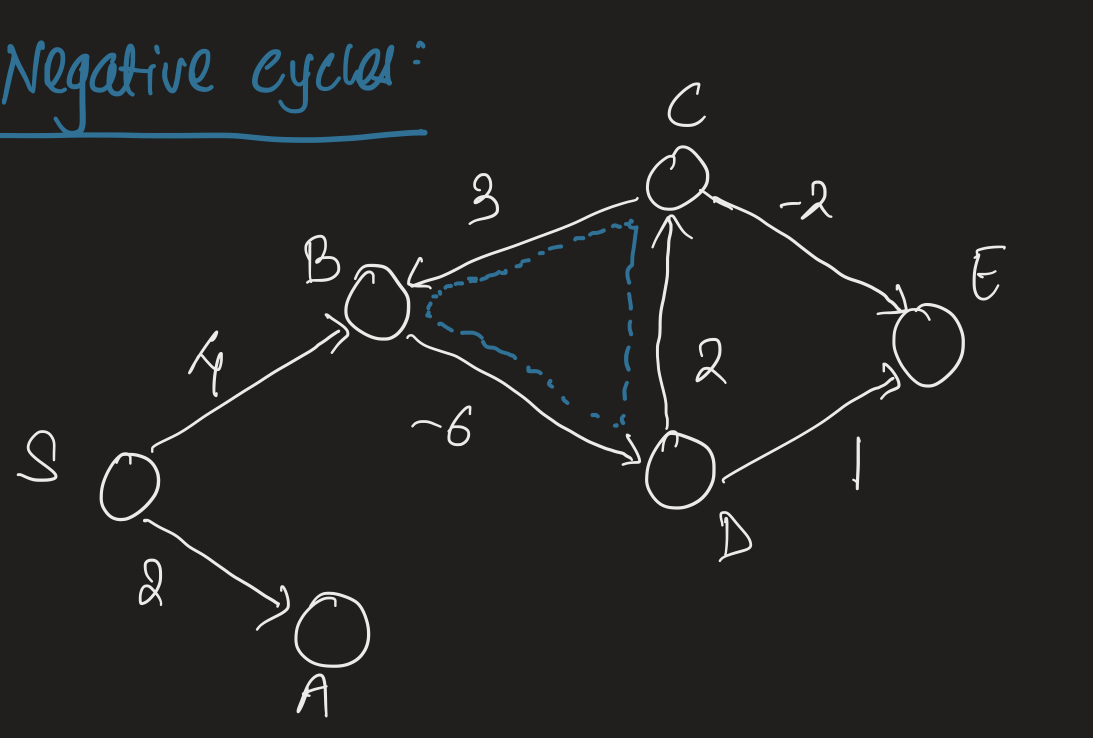 Negative cycles:
C
3
-2
B
E
4
2
-6
S
1
D
2
A